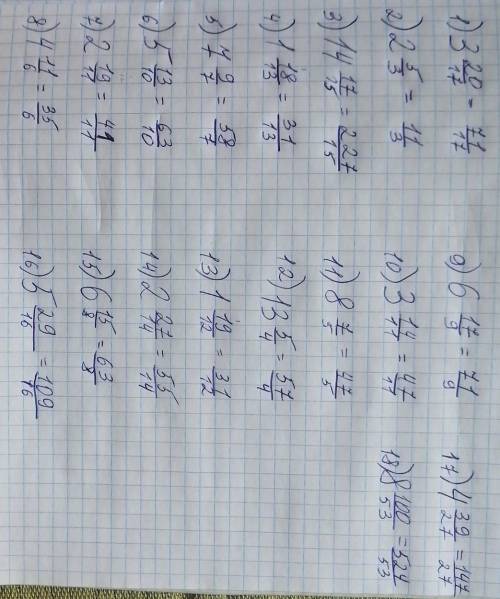 1) 3 20/17 = 71/17
2) 2 5/3 = 11/3
3) 14 17/15 = 227/15
4) 1 18/13 = 31/13
5) 7 9/7 = 58/7
6) 5 13/10 = 63/10
7) 2 19/11 = 41/11
8) 4 11/6 = 35/6
9) 6 17/9 = 71/9
10) 3 14/11 = 47/11
11) 8 7/5 = 47/5
12) 13 5/4 = 57/4
13) 1 19/12 = 31/12
14) 2 27/14 = 55/14
15) 6 15/8 = 63/8
16) 5 29/16 = 109/16
17) 4 39/27 = 147/27
18) 8 100/53 = 524/53